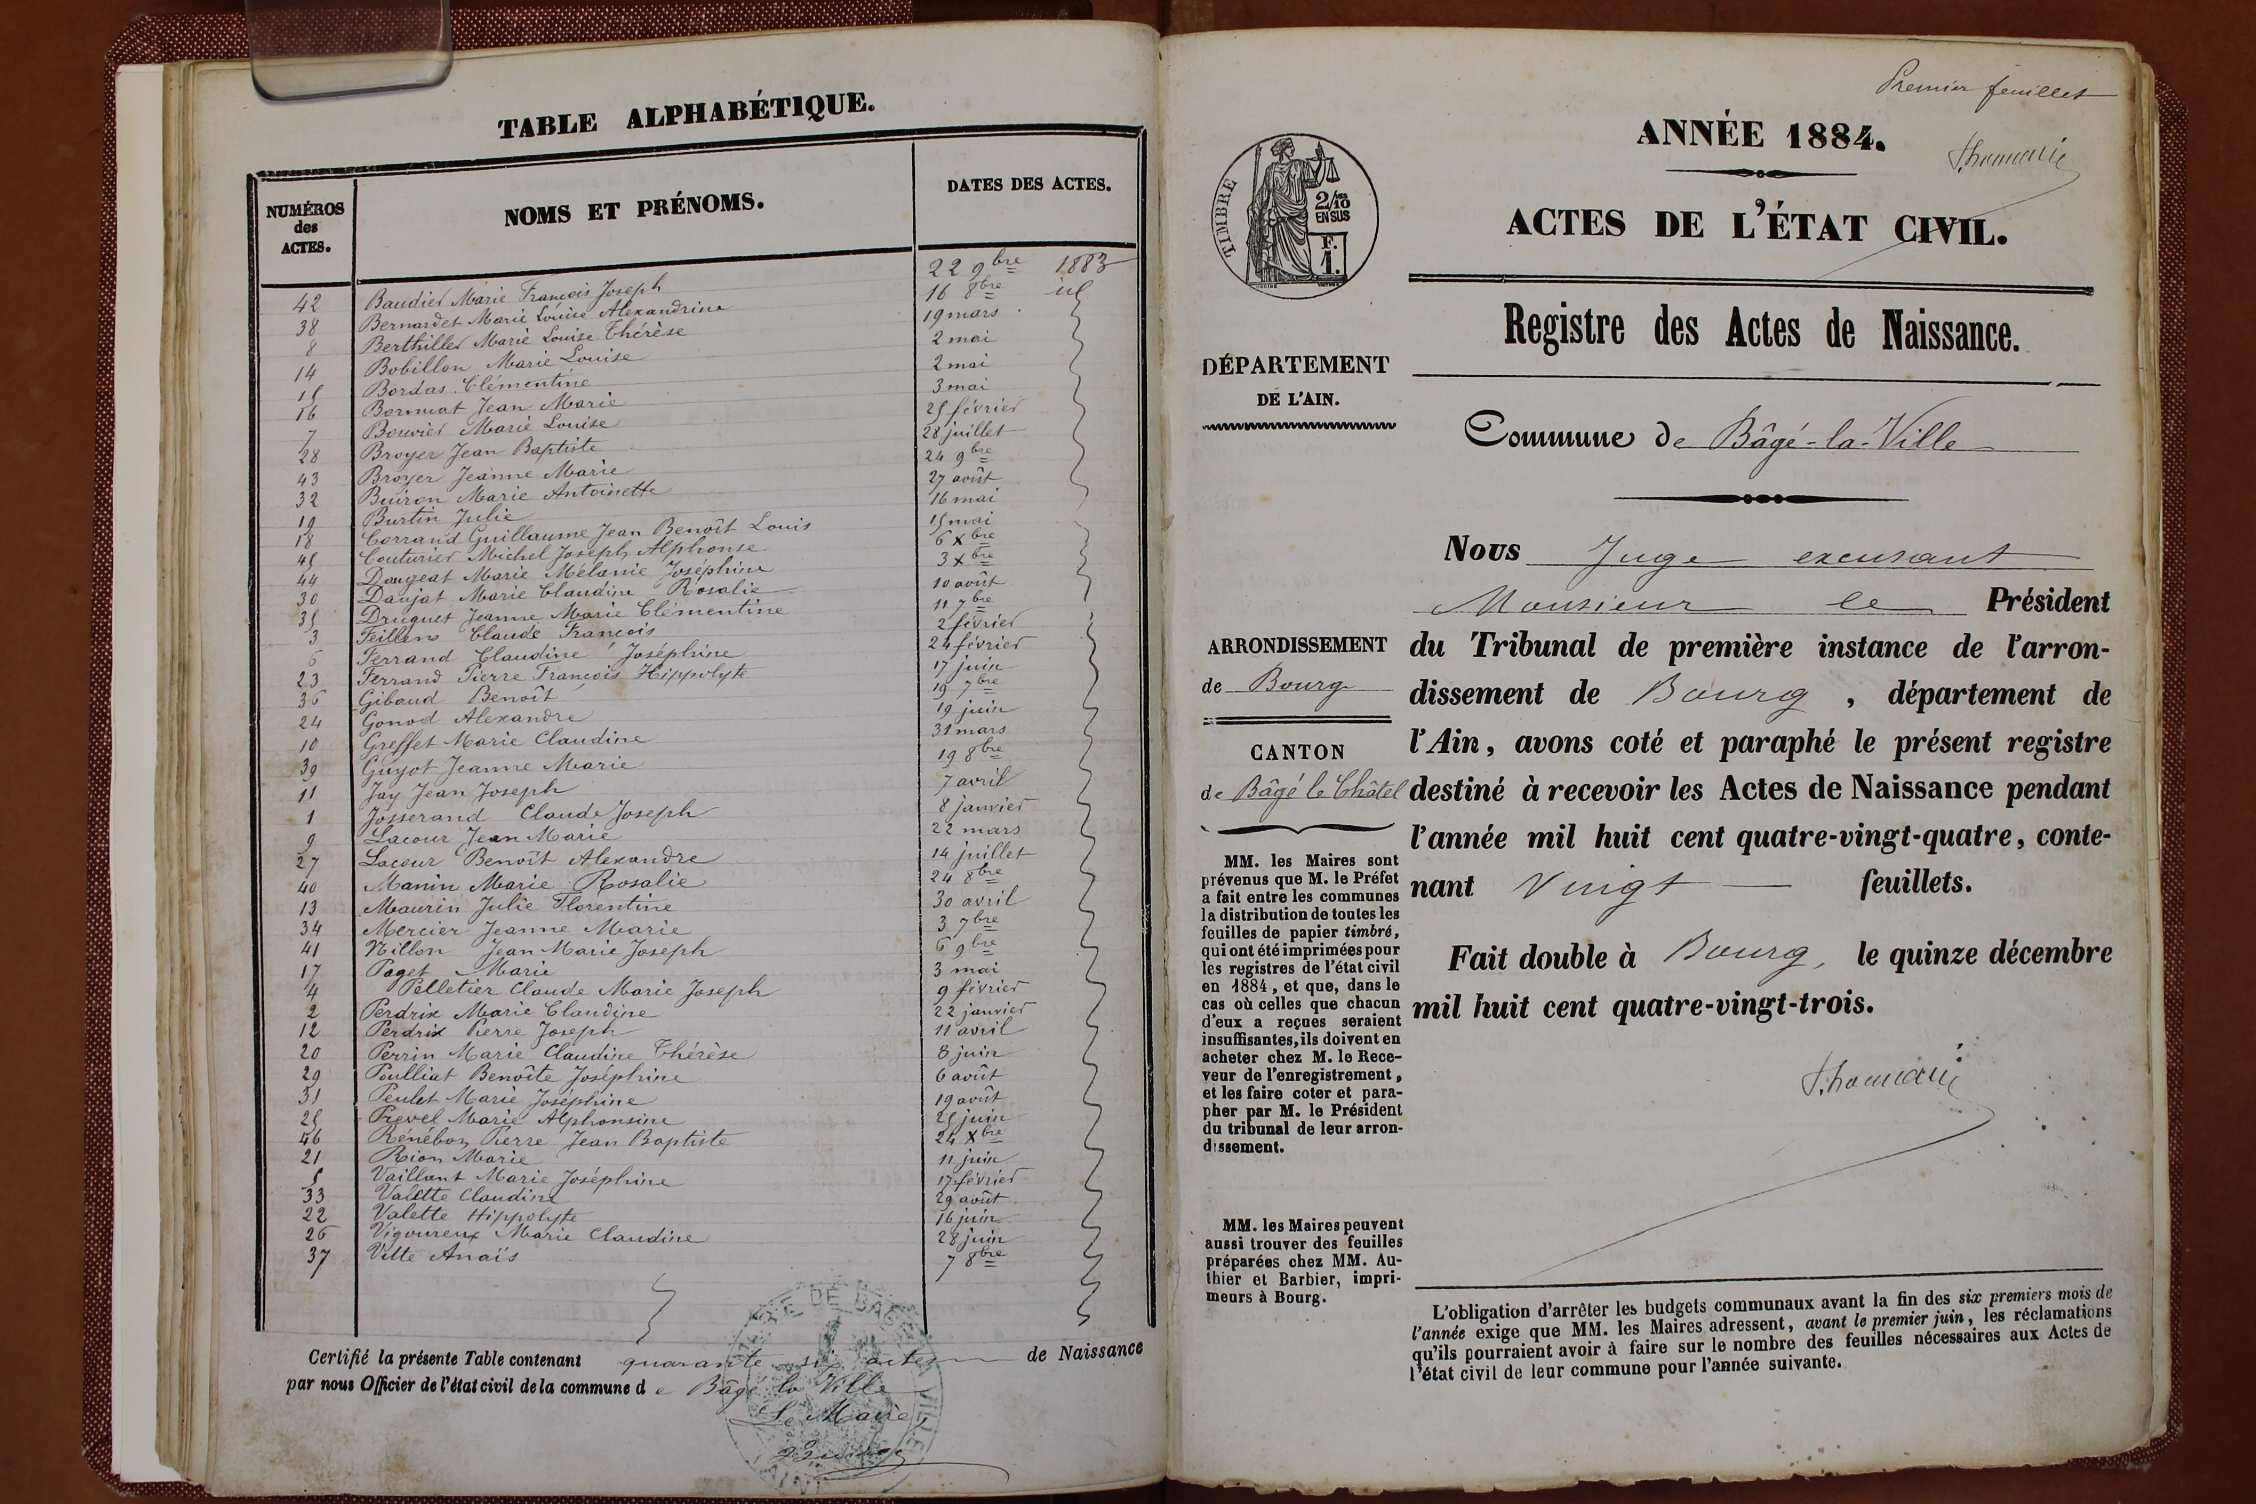 TABLE ALPHABÉTIQUE.
NUMÉROS des ACTES. NOMS ET PRÉNOMS. DATES DES ACTES.
42 Baudier Marie François Joseph 22 9bre 1883
38 Bernardet Marie Louise Alexandrine 16 8bre id
8 Berthillet Marie Louise Thérèse 19 mars
14 Bobillon Marie Louise 2 mai
15 Bordas Clémentine 2 mai
16 Bornuat Jean Marie 3 mai
7 Bouvier Marie Louise 25 février
28 Broyer Jean Baptiste 28 juillet
43 Broyer Jeanne Marie 24 9bre
32 Buiron Marie Antoinette 27 août
19 Burtin Julie 16 mai
18 Corrand Guillaume Jean Benoît Louis 15 mai
45 Couturier Michel Joseph Alphonse 6 Xbre
44 Daugeat Marie Mélanie Joséphine 3 Xbre
30 Daujat Marie Claudine Rosalie 10 août
35 Druguet Jeanne Marie Clémentine 11 7bre
3 Feillens Claude François 2 février
6 Ferrand Claudine Joséphine 24 février
23 Ferrand Pierre François Hippolyte 17 juin
36 Giboud Benoît 19 7bre
24 Gonod Alexandre 19 juin
10 Greffet Marie Claudine 31 mars
39 Guyot Jeanne Marie 19 8bre
11 Jay Jean Joseph 7 avril
1 Josserand Claude Joseph 8 janvier
9 Lacour Jean Marie 22 mars
27 Lacour Benoît Alexandre 14 juillet
40 Manin Marie Rosalie 24 8bre
13 Maurin Julie Florentine 30 avril
34 Mercier Jeanne Marie 3 7bre
41 Nillon Jean Marie Joseph 6 9bre
17 Paget Marie 3 mai
4 Pelletier Claude Marie Joseph 9 février
2 Perdrix Marie Claudine 22 janvier
12 Perdrix Pierre Joseph 11 avril
20 Perrin Marie Claudine Thérèse 8 juin
29 Poulliat Benoîte Joséphine 6 août
31 Peulet Marie Joséphine 19 août
25 Prevel Marie Alphonsine 25 juin
46 Rénébon Pierre Jean Baptiste 24 Xbre
21 Rion Marie 11 juin
5 Vaillant Marie Joséphine 17 février
33 Valette Claudine 29 août
22 Valette Hippolyte 16 juin
26 Vigoureux Marie Claudine 28 juin
37 Vitte Anaïs 7 8bre
Certifié la présente Table contenant quarante six actes de Naissance
par nous Officier de l'état civil de la commune de Bâgé la Ville
Le Maire
MAIRIE DE BAGÉ LA VILLE
Premier feuillet
ANNÉE 1884.
ACTES DE L'ÉTAT CIVIL.
TIMBRE
2/10
EN SUS
F.
1.
Registre des Actes de Naissance.
DÉPARTEMENT
DE L'AIN.
Commune de Bâgé-la-Ville
ARRONDISSEMENT
de Bourg
CANTON
de Bâgé le Châtel
MM. les Maires sont
prévenus que M. le Préfet
a fait entre les communes
la distribution de toutes les
feuilles de papier timbré,
qui ont été imprimées pour
les registres de l'état civil
en 1884, et que, dans le
cas où celles que chacun
d'eux a reçues seraient
insuffisantes, ils doivent en
acheter chez M. le Rece-
veur de l'enregistrement,
et les faire coter et para-
pher par M. le Président
du tribunal de leur arron-
dissement.
MM. les Maires peuvent
aussi trouver des feuilles
préparées chez MM. Au-
thier et Barbier, impri-
meurs à Bourg.
Nous Juge excusant
Monsieur le Président
du Tribunal de première instance de l'arron-
dissement de Bourg, département de
l'Ain, avons coté et paraphé le présent registre
destiné à recevoir les Actes de Naissance pendant
l'année mil huit cent quatre-vingt-quatre, conte-
nant Vingt feuillets.
Fait double à Bourg, le quinze décembre
mil huit cent quatre-vingt-trois.
L'obligation d'arrêter les budgets communaux avant la fin des six premiers mois de
l'année exige que MM. les Maires adressent, avant le premier juin, les réclamations
qu'ils pourraient avoir à faire sur le nombre des feuilles nécessaires aux Actes de
l'état civil de leur commune pour l'année suivante.